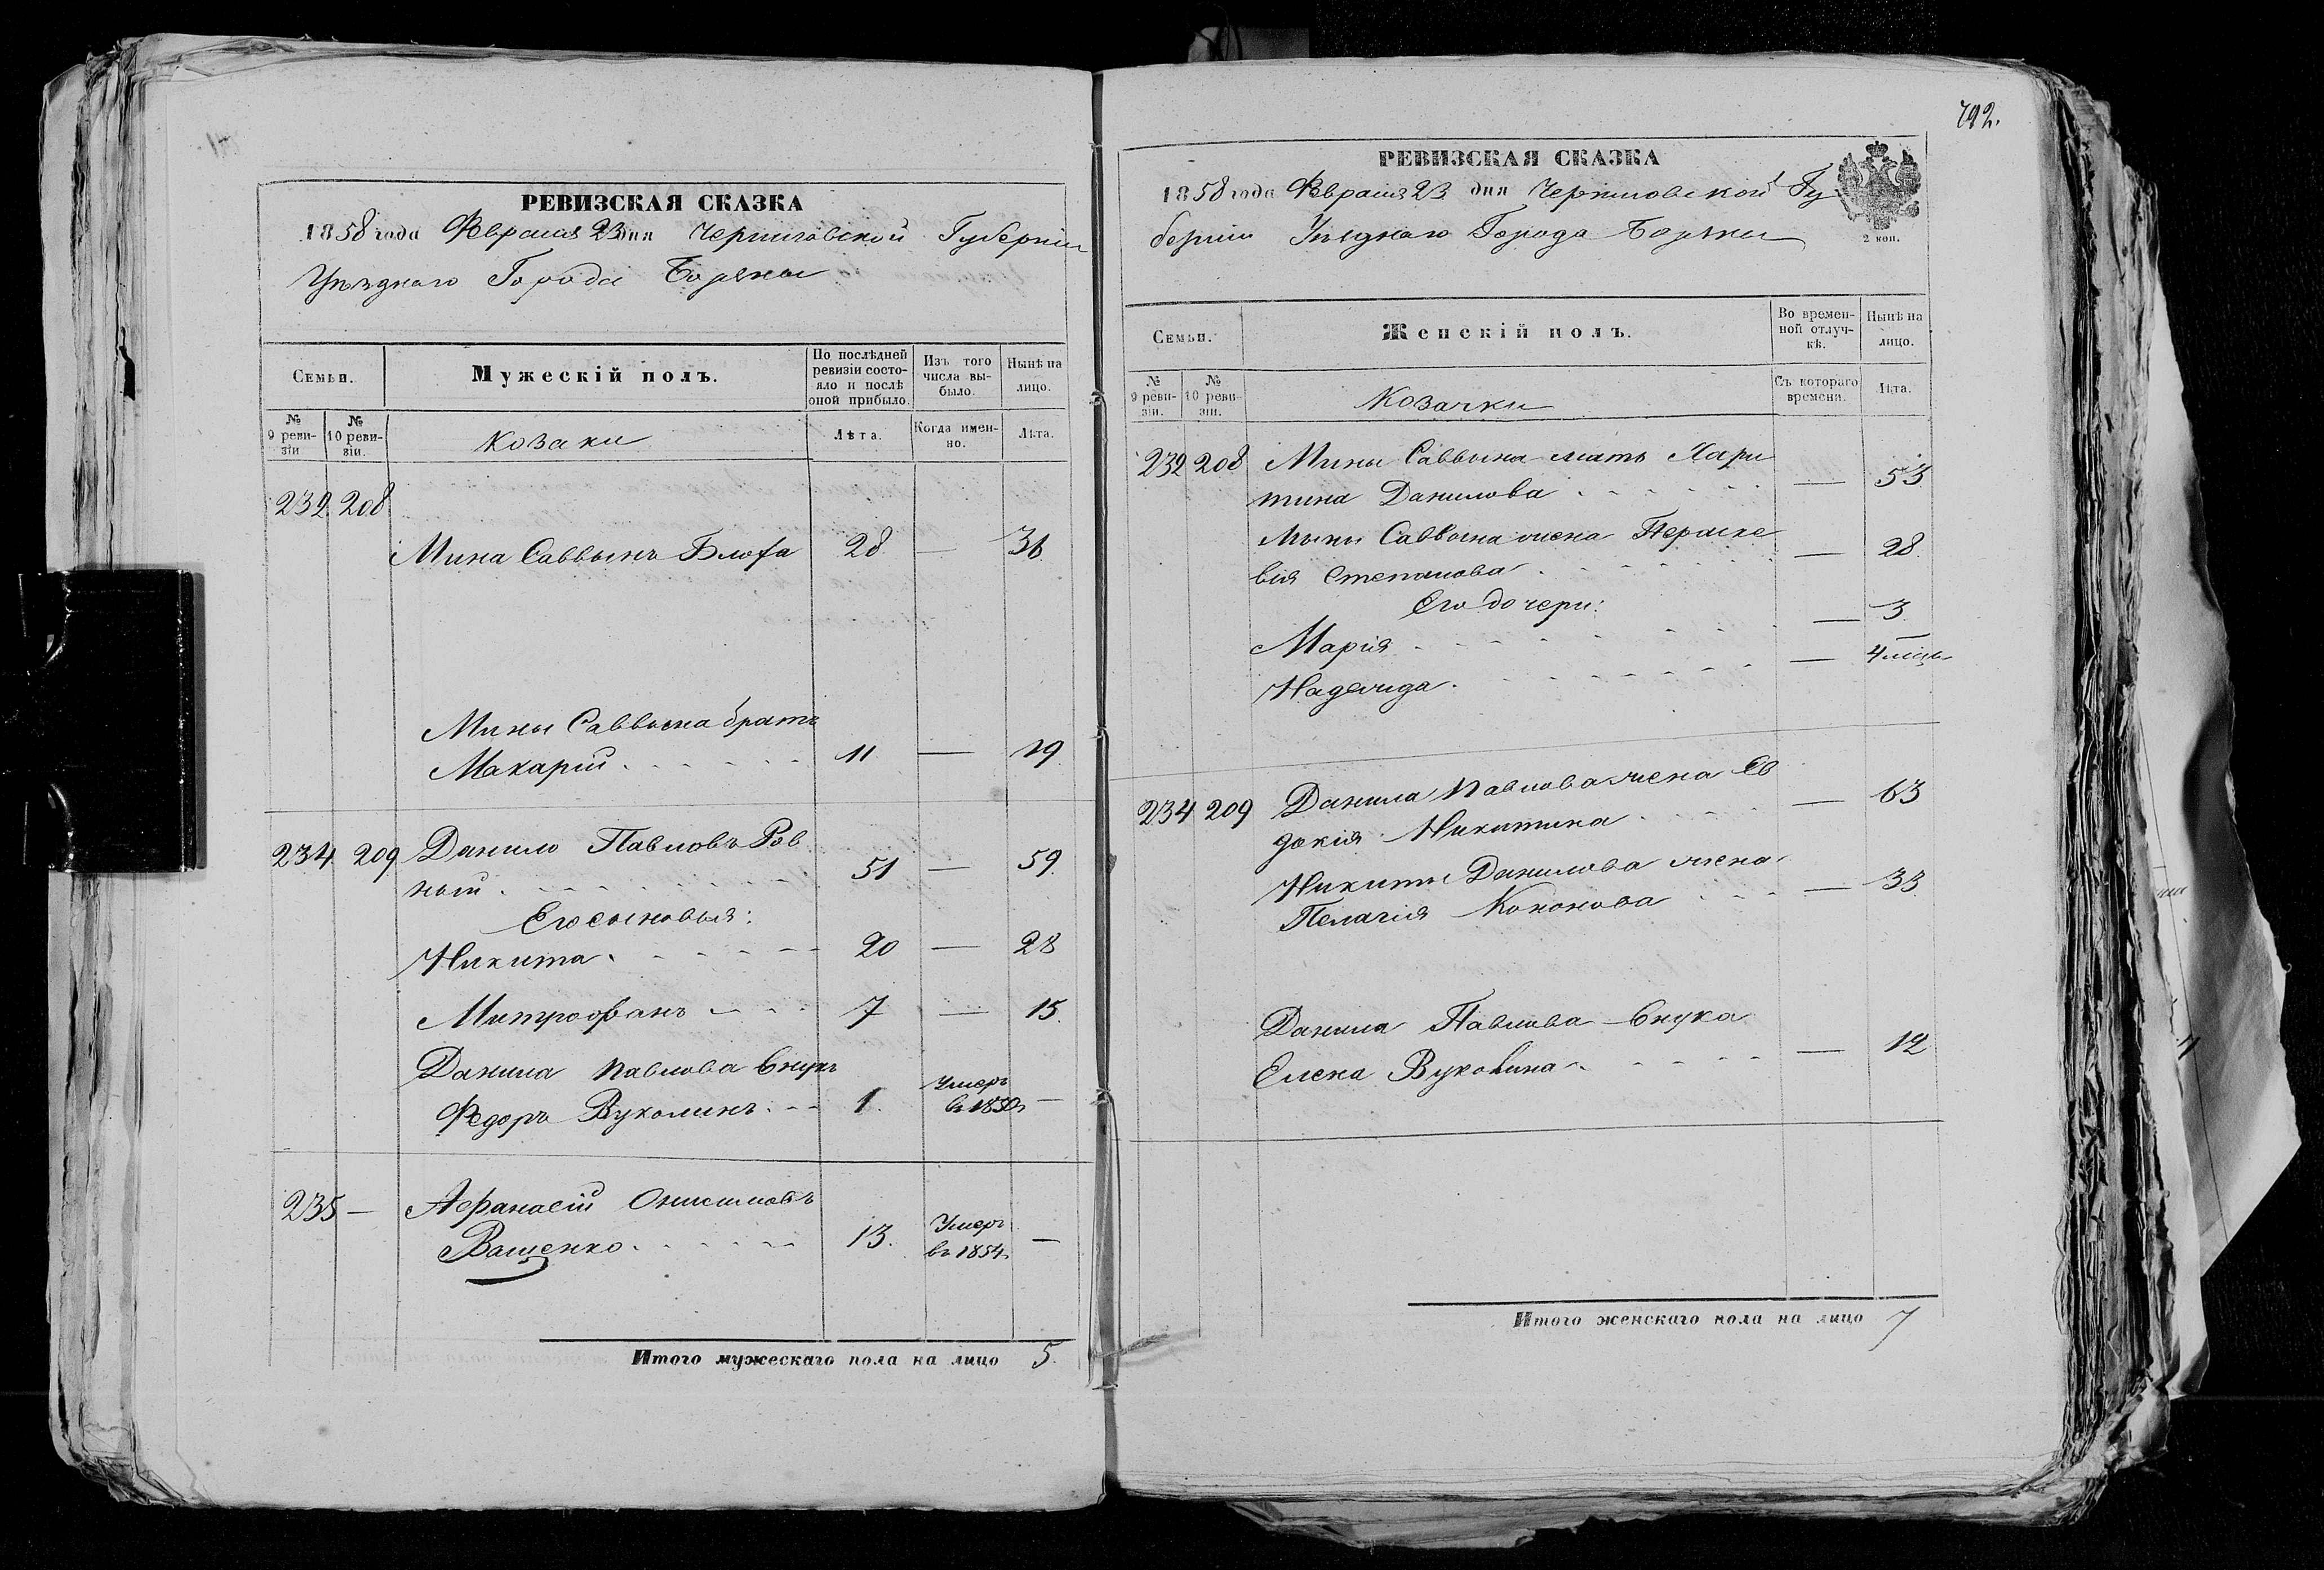 РЕВИЗСКАЯ СКАЗКА
1858 года Февраля 23 дня Черниговской Губерніи
Уѣзднаго Города Борзны
Семьи.
Мужескій полъ.
По послѣдней ревизіи состояло и послѣ оной прибыло.
Изъ того числа выбыло.
Нынѣ на лицо.
№ 9 ревизіи
№ 10 ревизіи.
Козаки
Лѣта.
Когда именно.
Лѣта.
232 208
Мина Саввинъ 28 — 36
Мины Саввина братъ
Макарій 11 — 19
234 209 Данило Павловъ Ров
ный 51 — 59
Его сыновья:
Никита 20 — 28
Митрофанъ 7 — 15
Данила Павлова внукъ
Федоръ Вуколинъ 1. Умеръ въ 1850 —
235 — Афанасій Онисимовъ
Ващенко 13. Умеръ въ 1854 —
Итого мужескаго пола на лицо 5.
792.
РЕВИЗСКАЯ СКАЗКА
1858 года Февраля 23 дня Черниговской Гу
берніи Уѣзднаго Города Борзны
2 коп.
Семьи.
Женскій полъ.
Во временной отлучкѣ.
Нынѣ на лицо.
№ 9 ревизіи.
№ 10 ревизіи.
Козачки
Съ котораго времени.
Лѣта.
232 208 Мины Саввина мать Хари
тина Данилова — 53
Мины Саввина жена Пераске
вія Степанова — 28
Его дочери:
Марія — 3
Надежда — 4 мѣсц.
234 209 Данила Павлова жена Ев
докія Никитина — 63
Никиты Данилова жена
Пелагія Кононова — 33
Данила Павлова внука
Елена Вуколина — 12
Итого женскаго пола на лицо 7